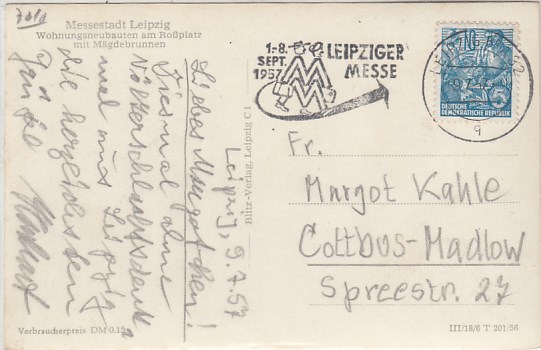 Messestadt Leipzig
Wohnungsneubauten am Roßplatz
mit Mägdebrunnen
1.-8.
SEPT.
1957
LEIPZIGER
MESSE
MM
DEUTSCHE
DEMOKRATISCHE REPUBLIK
5
Leipzig, 9.7.57
Liebes Margotchen!
Diesmal ohne
Völkerschlachtdenk-
mal aus Leipzig
die herzlichsten
Grüße
Fr.
Margot Kahle
Cottbus-Madlow
Spreestr. 27
Blitz-Verlag, Leipzig C 1
Verbraucherpreis DM 0.15
III/18/6 T 201/56